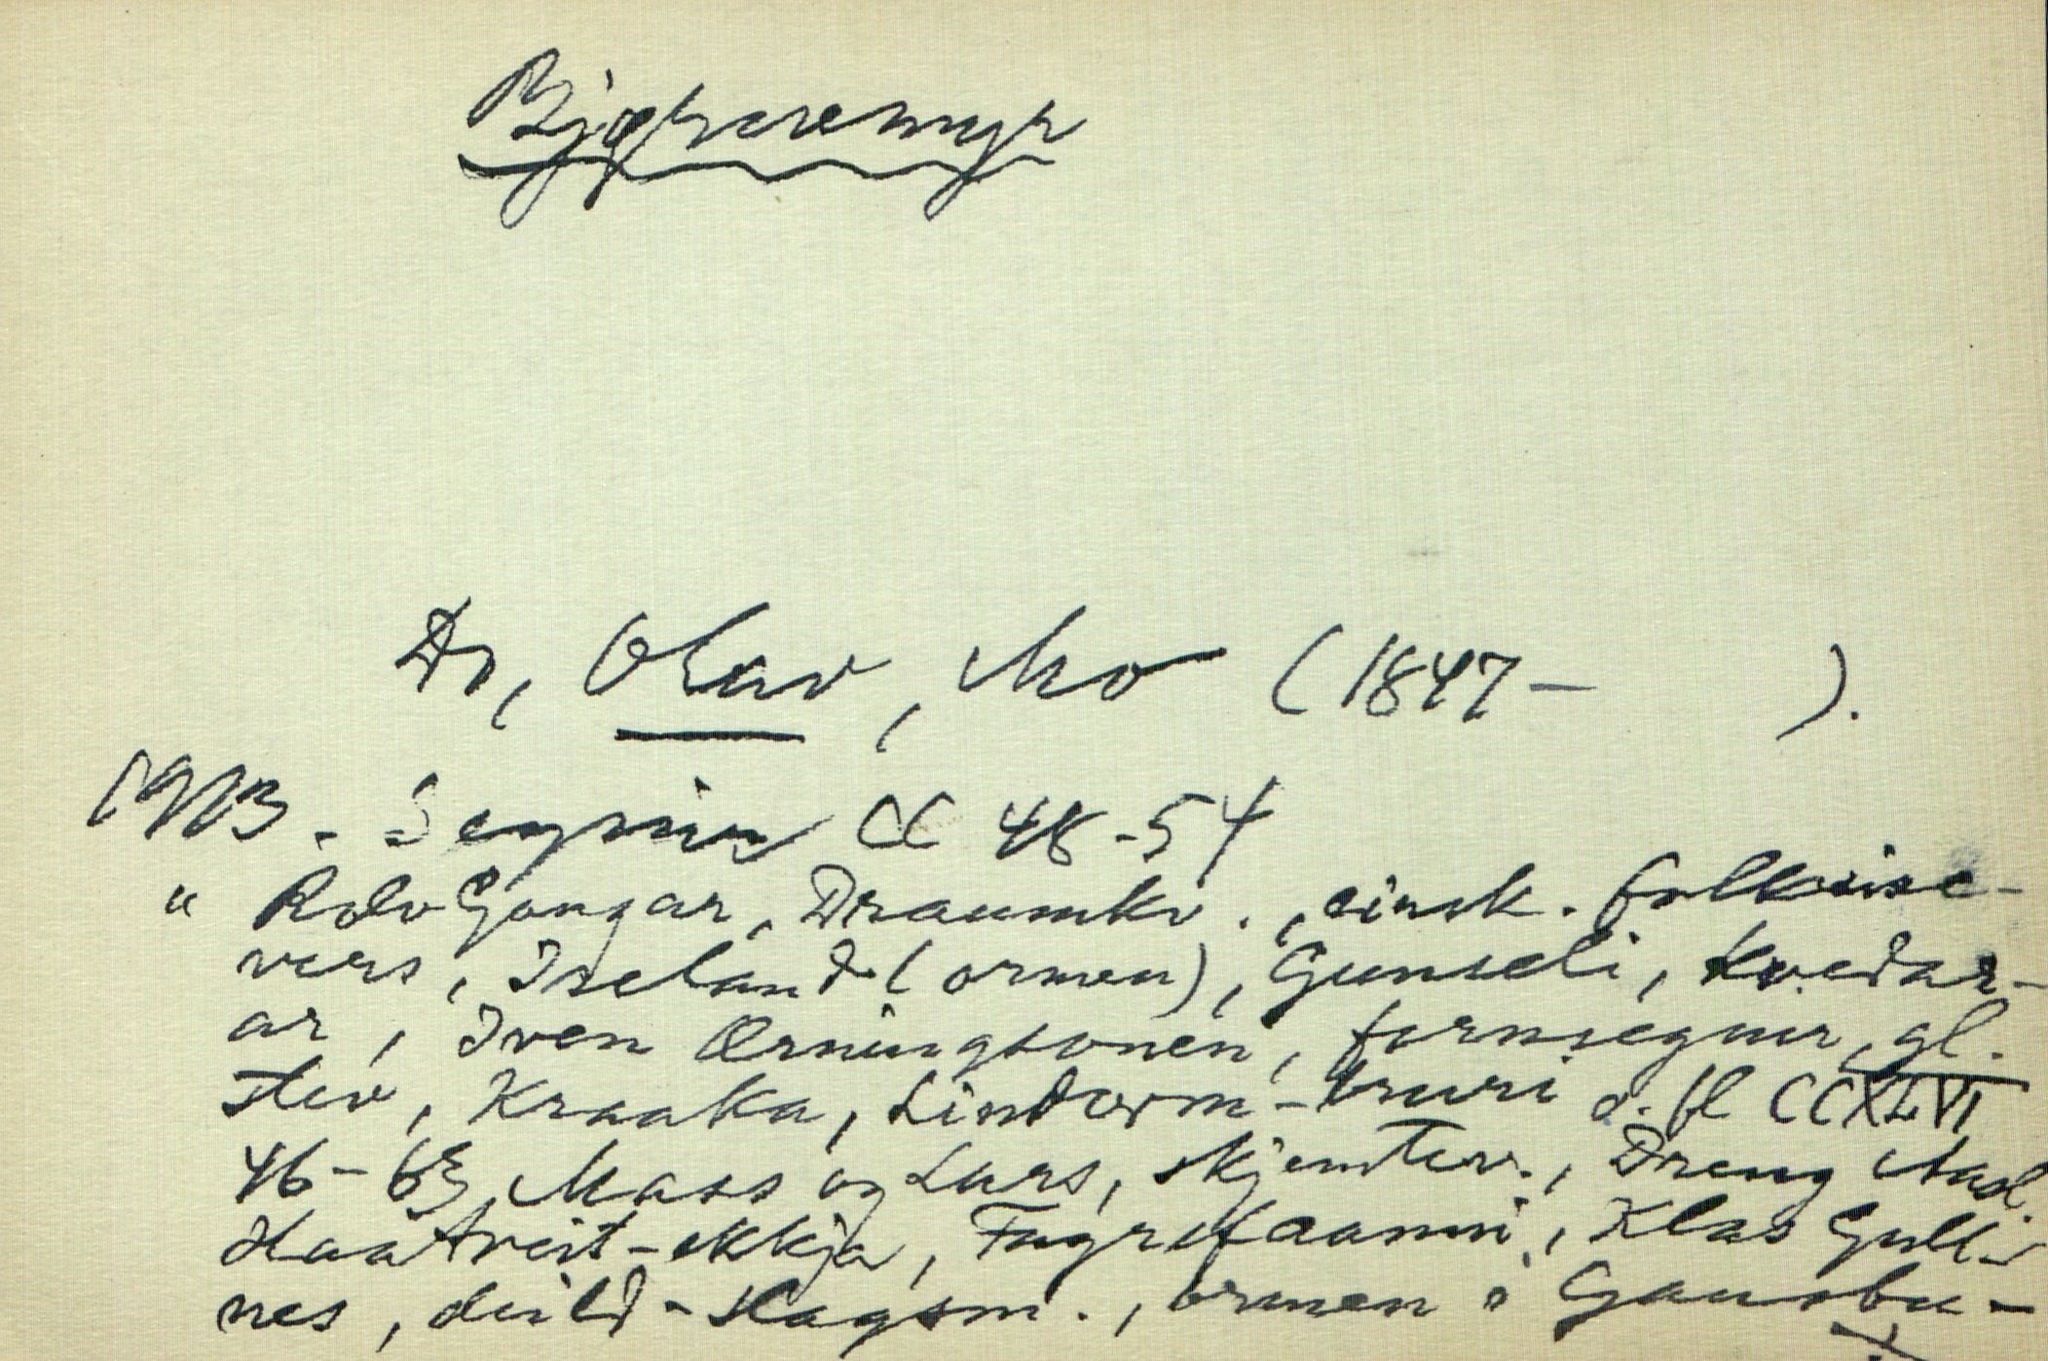 Bjørnemyr
Dr, Olav, Mo (1847- ).
1913. - Segnir CC 48-54
" Rolv Gongar, Draumkv., einsk. folkevise-
vers, Iseland (ormen), Gunseli, kvedar-
ar, Iven Erningsonen, fornsegner, gl.
stev, Kraaka, Lindorm-bruri o. fl CCXLVI
46-63, Mass og Lars, skjemtev., Dreng
Haatveit-ekkja, Fagrefaanni, Klas Gull-
nes, deild-slagsm., ormen i Gausbu-